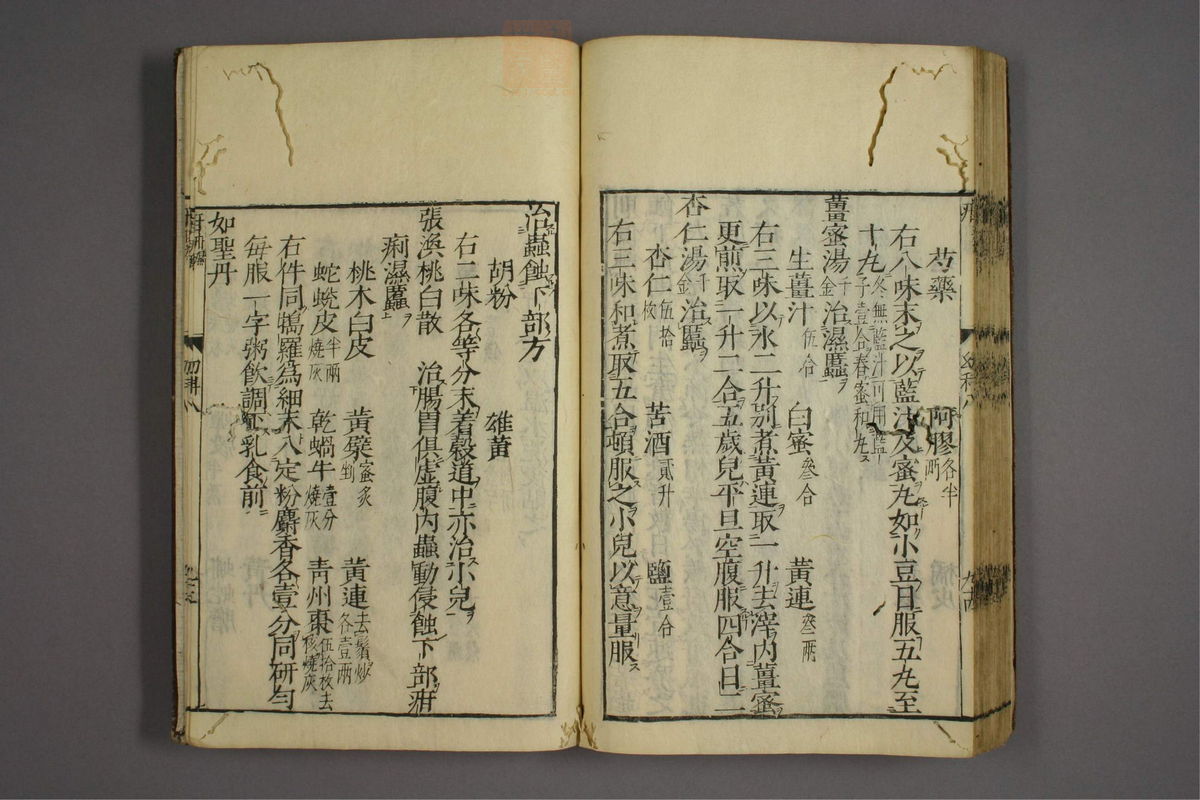 芍藥 阿膠各半兩
右八味末之以藍汁及蜜丸如小豆日服五丸至
十丸冬無藍汁可用藍子壹合舂蜜和丸
薑蜜湯 千金 治濕䘌
生薑汁伍合 白蜜叄合 黃連叄兩
右三味以水二升別煮黃連取一升去滓内薑蜜
更煎取一升二合五歲兒平旦空腹服四合日二
杏仁湯 千金 治䘌
杏仁伍拾枚 苦酒貳升 鹽壹合
右三味和煮取五合頓服之小兒以意量服
治蟲蝕下部方
胡粉 雄黃
右二味各等分末着穀道中亦治小兒
張渙桃白散 治腸胃俱虛腹内蟲動侵蝕下部疳
痢濕䘌
桃木白皮 黃蘗蜜炙剉 黃連去鬚炒各壹兩
蛇蛻皮半兩燒灰 乾蝸牛壹分燒灰 靑州棗伍拾枚去核燒灰
右件同搗羅爲細末入定粉麝香各壹分同研勻
每服一字粥飮調下乳食前
如聖丹